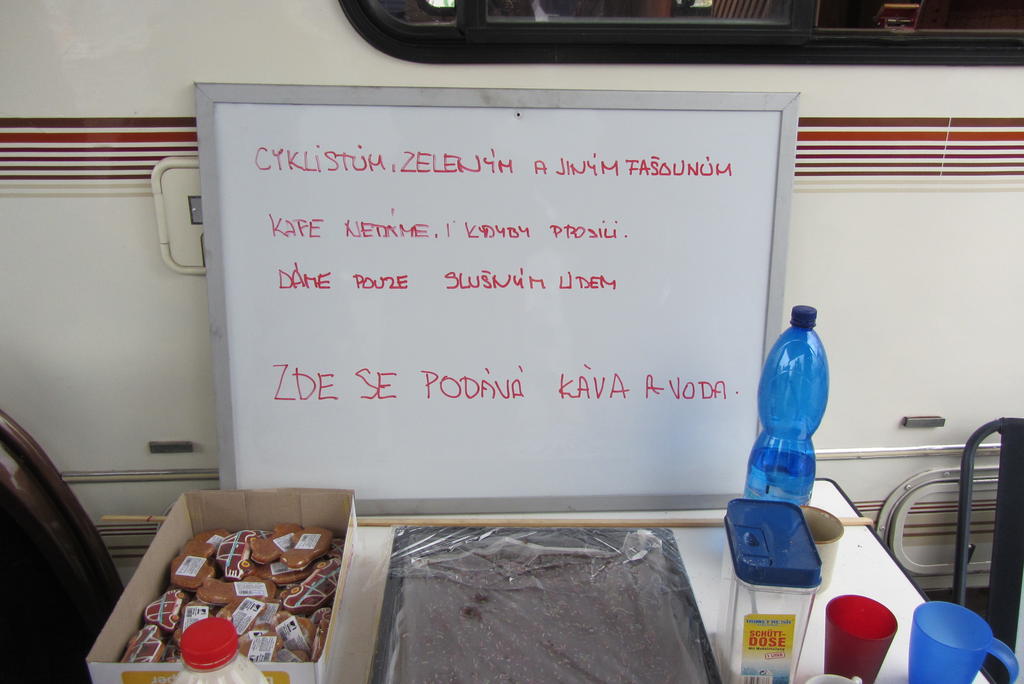 CYKLISTŮM, ZELENÝM A JINÝM FAŠOUNŮM
KAFE NEDÁME, I KDYBY PROSILI.
DÁME POUZE SLUŠNÝM LIDEM
ZDE SE PODÁVÁ KÁVA A VODA.
SCHÜTT-
DOSE